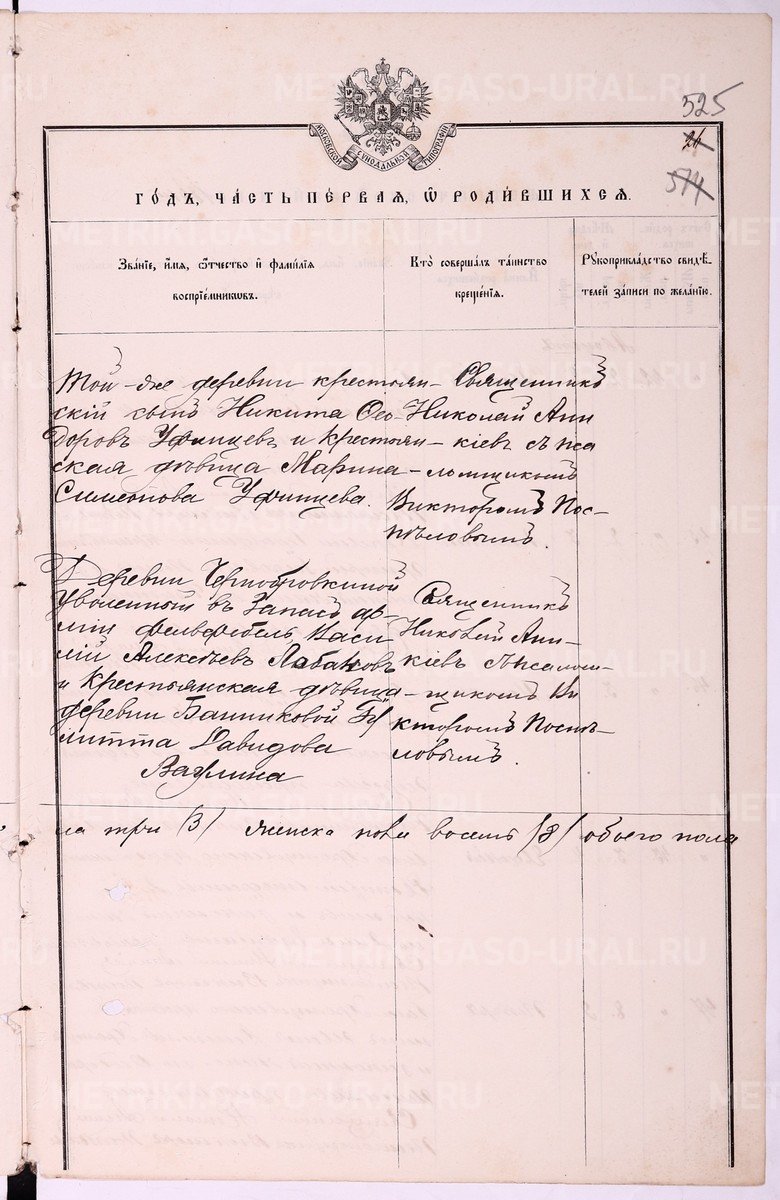 525
26
574
МОСКОВСКОЙ СѴНОДАЛЬНОЙ ТИПОГРАФІИ
ГОДЪ, ЧАСТЬ ПЕРВАЯ, Ѡ РОДИВШИХСЯ.
Званіе, имя, ѻтчество и фамилія
воспріемниковъ.
Кто совершалъ таинство
крещенія.
Рукоприкладство свидѣ-
телей записи по желанію.
Той-же деревни крестьян-
скій сынъ Никита Ѳео-
доровъ Уфинцевъ и крестьян-
ская дѣвица Марина
Симеонова Уфинцева.
Священникъ
Николай Ани-
кіевъ съ пса
ломщикомъ
Викторомъ Пос-
пѣловымъ.
Деревни Чернобровкиной
Уволенный въ запасъ ар-
міи фельфебель Васи
лій Алексѣевъ Лобановъ
и Крестьянская дѣвица
деревни Банниковой
Давидова
Вагулина
Священникъ
Николай Ани-
кіевъ съ псалом-
щикомъ Ви
кторомъ Поспѣ-
ловымъ.
ла три (3) женска пола восемь (8) обоего пола
METRIKI.GASO-URAL.RU